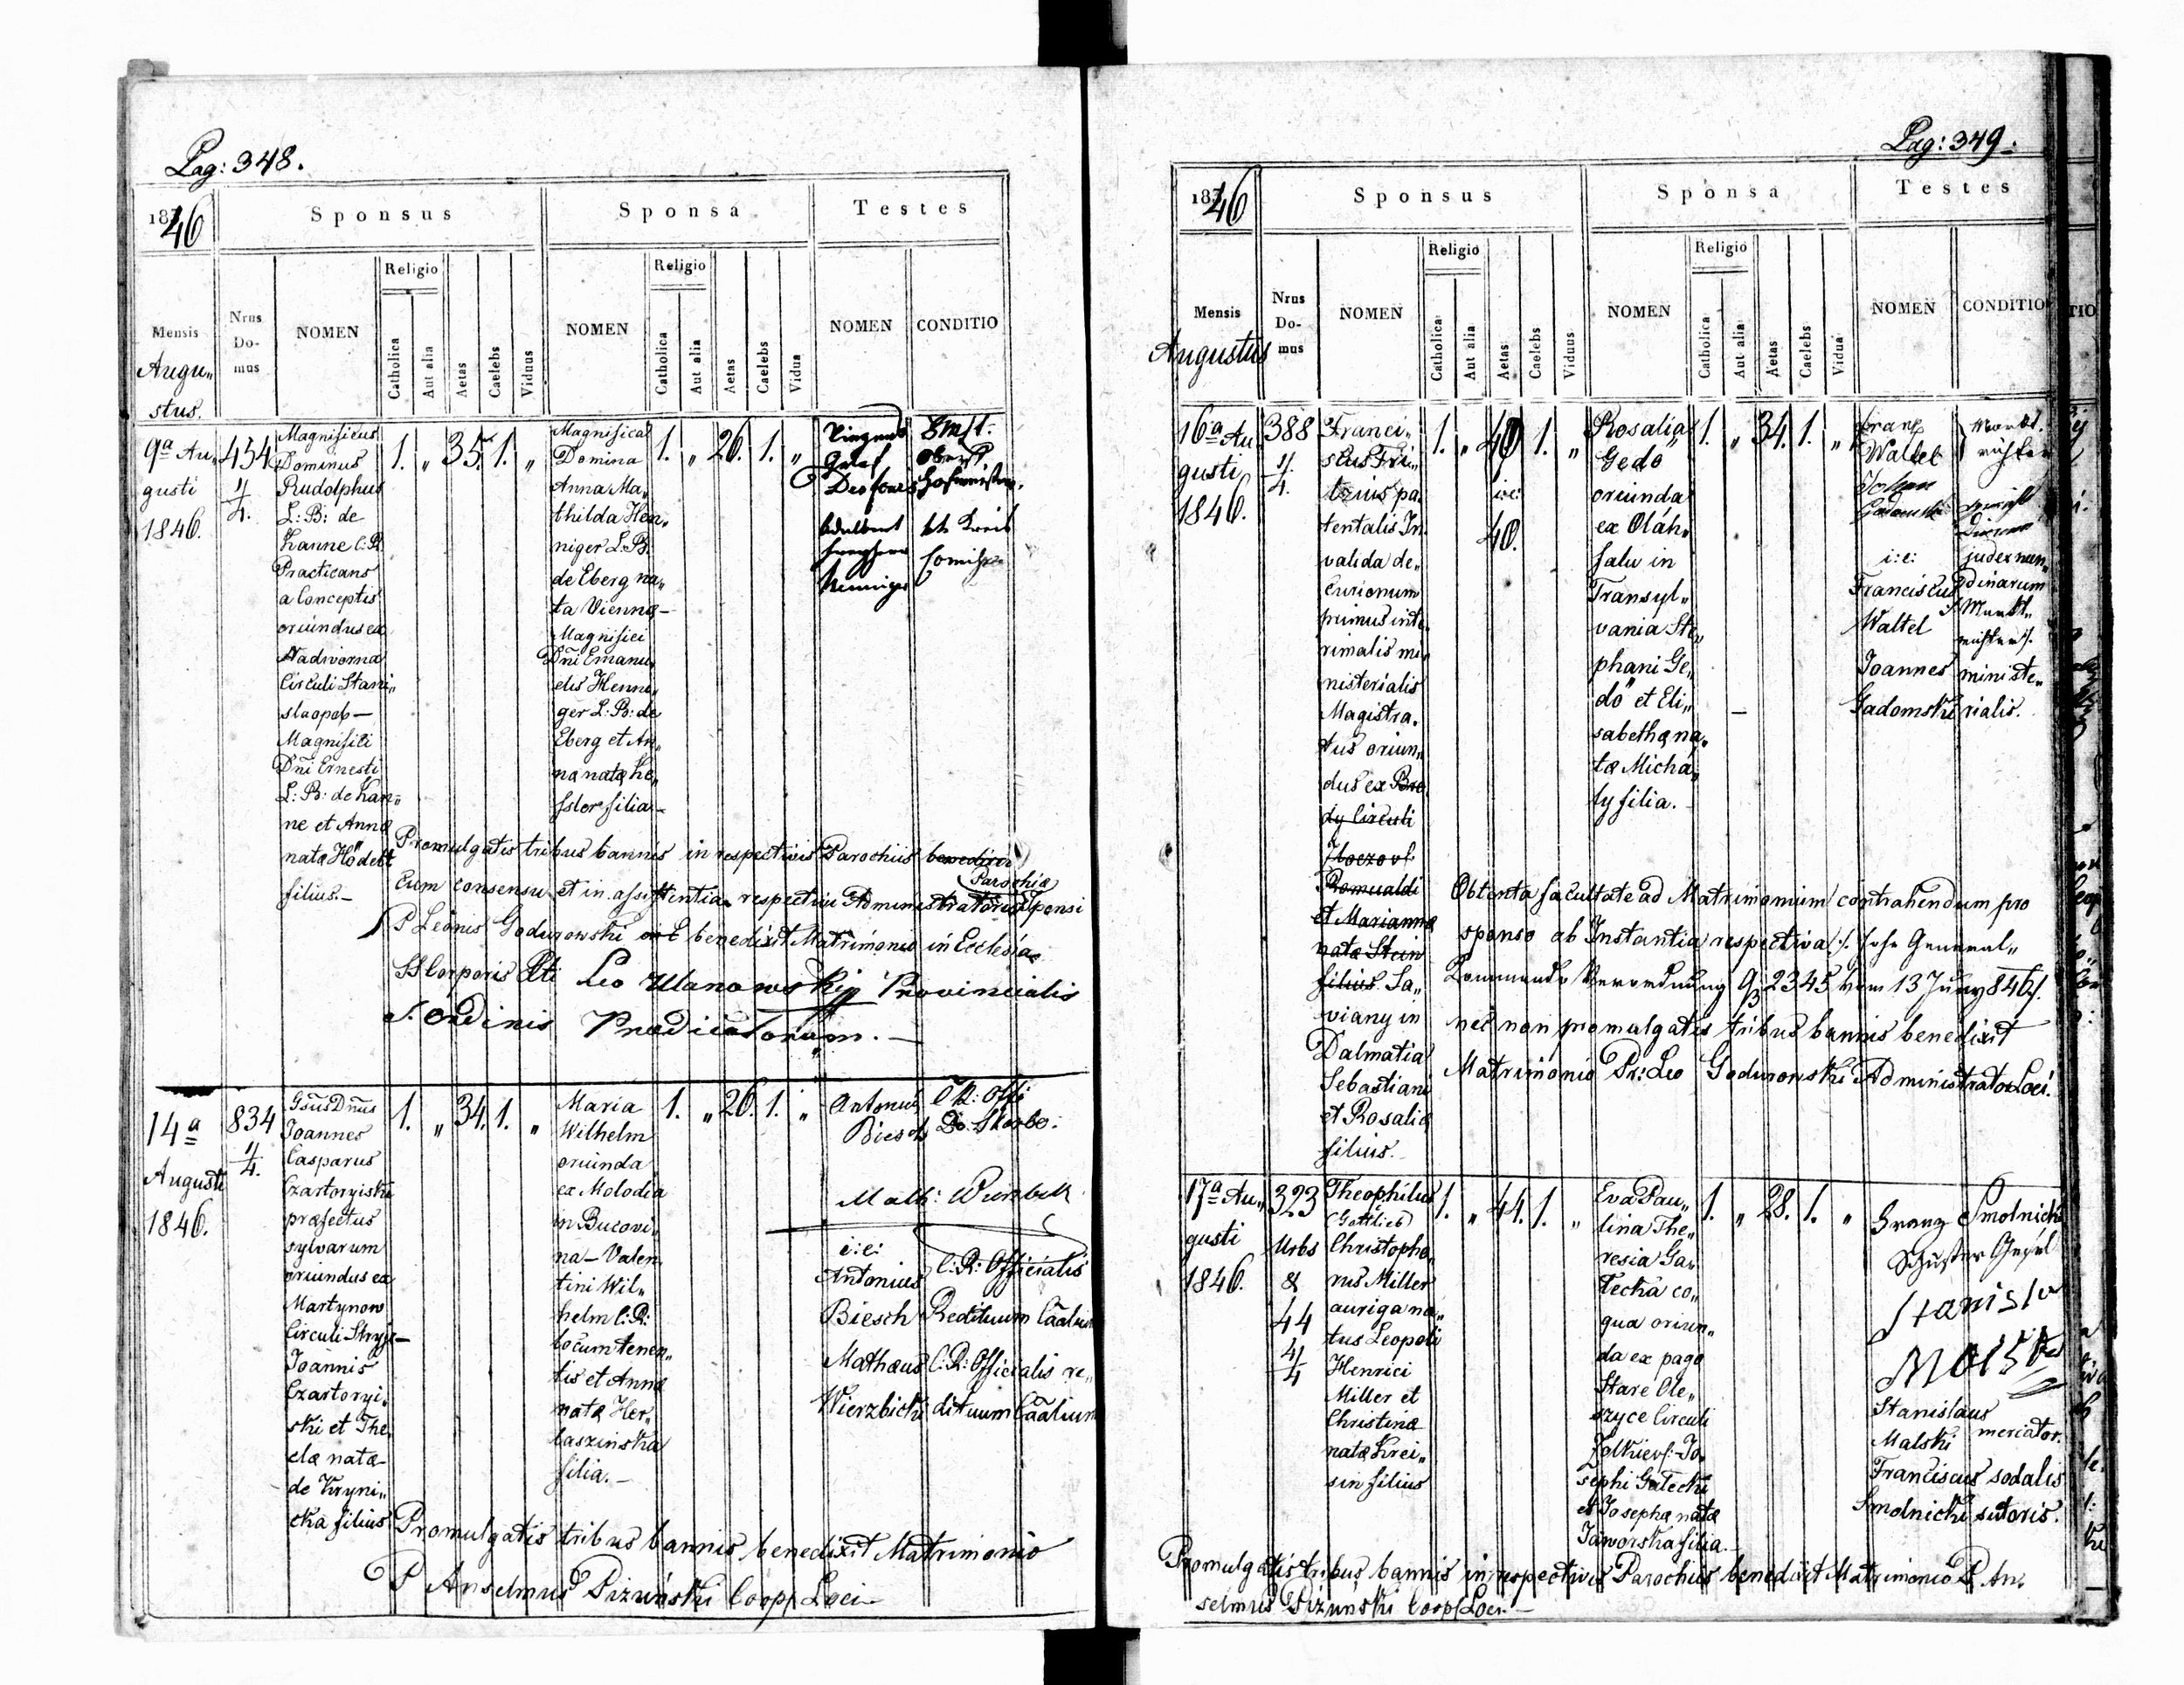 Pag: 348.
1846
Sponsus
Sponsa
Testes
Mensis
Augu„
stus.
Nrus
Do-
mus
NOMEN
Religio
Catholica
Aut alia
Aetas
Caelebs
Viduus
NOMEN
Religio
Catholica
Aut alia
Aetas
Caelebs
Vidua
NOMEN
CONDITIO
9ª Au„
gusti
1846.
454
4/4.
Magnificus
Dominus
Rudolphus
L: B: de
Hanne C: R:
Practicans
a Conceptis
oriundus ex
Nadworna
Circuli Stani„
slaopol —
Magnifici
Dni Ernesti
L: B: de Han„
ne et Anna
nata Hödelt
filius. —
1. „ 35. 1. „
Magnifica
Domina
Anna Ma„
thilda Hen„
niger L: B:
de Eberg na„
ta Vienna —
Magnifici
Dni Emanu„
elis Henni„
ger L: B: de
Eberg et An„
na nata He„
filia —
1. „ 26. 1. „
Graf
Desfours
Oberst
Hofmeister.
Adalbert
Henniger
kk Kreis
Promulgatis tribus bannis in respectivis Parochiis benedixit
cum consensu et in assistentia respectivi Administratoris Sponsi
Parochiæ
P Leonis Godurowski benedixit Matrimonio in Ecclesia
SS Corporis Xti Leo Ulanowski Provincialis
S. Ordinis Prædicatorum. —
14ª
Augusti
1846.
834
4/4.
Gsus Dnus
Joannes
Casparus
Czartoryiski
præfectus
sylvarum
oriundus ex
Martynow
Circuli Stryj —
Joannis
Czartoryi„
ski et The„
clæ nata
de Kryni„
cka filius
1. „ 34. 1. „
Maria
Wilhelm
oriunda
ex Molodia
in Bucovi„
na — Valen„
tini Wil„
helm C: R:
locumtenen„
tis et Anna
nata Her„
baszinska
filia. —
1. „ 26. 1. „
Antonius
Biesch
C. R: Offi
Math:
i: e:
Antonius
Biesch
C: R: Officialis
Reddituum Caalium
Mathæus
Wierzbicki
C: R: Officialis re„
dituum Caalium
Promulgatis tribus bannis benedixit Matrimonio
P Anselmus Pizuński Coop/ Loci —
Pag: 349.
1846
Sponsus
Sponsa
Testes
Mensis
Augustus
Nrus
Do-
mus
NOMEN
Religio
Catholica
Aut alia
Aetas
Caelebs
Viduus
NOMEN
Religio
Catholica
Aut alia
Aetas
Caelebs
Vidua
NOMEN
CONDITIO
16ª Au
gusti
1846.
388
4/4.
Franci„
scus Fri„
tzius pa„
tentalis In„
valida de„
curionum
primus inte„
rimalis mi„
nisterialis
Magistra„
tus oriun„
dus ex Bro
dy Circuli
Zloczov:
Romualdi
et Marianna
nata Stein
filius. Sa„
viany in
Dalmatia
Sebastiani
et Rosalia
filius. —
1. „ 40 1. „
i: e:
40.
Rosalia
Gedö
oriunda
ex Oláh„
falu in
Transyl„
vania Ste„
phani Ge„
dö et Eli„
sabetha na„
ta Micha„
ly filia. —
1. „ 34. 1. „
Franz
Waltel
Markt.
richter
Johan
Gadomski
i: e:
Franciscus
Waltel
judex nun„
dinarum
/: Markt„
richter :/
Joannes
Gadomski
ministe„
rialis.
Obtenta facultate ad Matrimonium contrahendum pro
sponso ab Instantia respectiva /: hohe General„
Commando Verordnung 2345 vom 13 Juny 846 :/
nec non promulgatis tribus bannis benedixit
Matrimonio Pr: Leo Godurowski Administrator Loci.
17ª Au„
gusti
1846.
323
Urbs
&
44
4/4
Theophilus
(Gottlieb)
Christopho„
rus Miller
auriga na„
tus Leopoli
Henrici
Miller et
Christina
nata Krei„
sin filius
1. „ 44. 1. „
Eva Pau„
lina The„
resia Ga„
łecka co„
qua oriun„
da ex pago
Stare Ole„
szyce Circuli
Zolkiew: Jo„
sephi Gałecki
et Josepha nata
Jaworska filia. —
1. „ 28. 1. „
Franz Smolnicki
Schuster Gesel
Stanislaus
Malski
mercator.
Franciscus
Smolnicki
sodalis
sutoris.
Promulgatis tribus bannis in respectivis Parochiis benedixit Matrimonio P An„
selmus Pizuński Coop/ Loci —